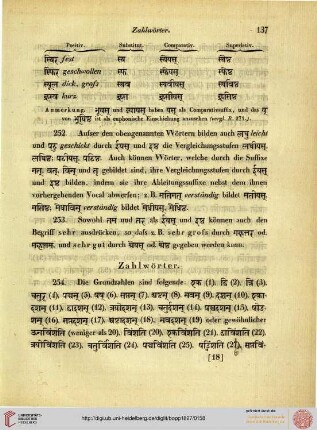 Zahlwörter. 137
Positiv. Substitut. Comparativ. Superlativ.
स्थिर fest स्थ स्थेयस् स्थेष्ठ
स्फिर geschwollen स्फ स्फेयस् स्फेष्ठ
स्थूल dick, groſs स्थव स्थवीयस् स्थविष्ठ
kurz
Anmerkung. भूयस् und ज्यायस् haben यस् als Comparativsuffix, und das य्
von भूयिष्ठ ist als euphonische Einschiebung anzusehen (vergl. R. 271.).
252. Auſser den obengenannten Wörtern bilden auch लघु leicht
und पटु geschickt durch ईयस् und इष्ठ die Vergleichungsstufen लघीयस्,
लघिष्ठ; पटीयस्, पटिष्ठ. Auch können Wörter, welche durch die Suffixe
मत्, वत्, विन् und तृ gebildet sind, ihre Vergleichungsstufen durch ईयस्
und इष्ठ bilden, indem sie ihre Ableitungssuffixe nebst dem ihnen
vorhergehenden Vocal abwerfen; z.B. मतिमत् verständig bildet मतीयस्,
मतिष्ठ; मेधाविन् verständig bildet मेधीयस्, मेधिष्ठ.
253. Sowohl तम und तर als ईयस् und इष्ठ können auch den
Begriff sehr ausdrücken, so daſs z.B. sehr groſs durch महत्तर od.
महत्तम, und sehr gut durch श्रेयस् od. श्रेष्ठ gegeben werden kann.
Zahlwörter.
254. Die Grundzahlen sind folgende. एक (1). द्वि (2). त्रि (3).
चतुर् (4). पञ्चन् (5). षष् (6). सप्तन् (7). अष्टन् (8). नवन् (9). दशन् (10). एका-
दशन् (11). द्वादशन् (12). त्रयोदशन् (13). चतुर्दशन् (14). पञ्चदशन् (15). षोड-
शन् (16). सप्तदशन् (17). अष्टादशन् (18). नवदशन् (19) oder gewöhnlicher
ऊनविंशति (weniger als 20). विंशति (20). एकविंशति (21). द्वाविंशति (22).
त्रयोविंशति (23). चतुर्विंशति (24). पञ्चविंशति (25). षड्विंशति (26). सप्तविं-
[18]
http://digi.ub.uni-heidelberg.de/diglit/bopp1827/0158